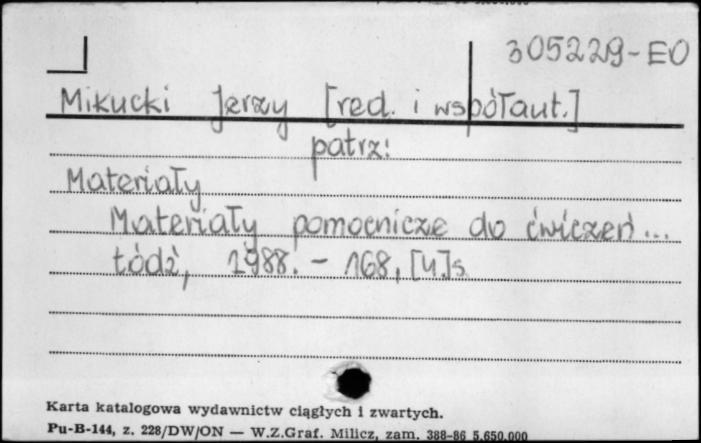 305229-EO
Mikucki Jerzy [red. i współaut.]
patrz:
Materiały
Materiały pomocnicze do ćwiczeń...
Łódź, 1988. - 168, [4]s.
Karta katalogowa wydawnictw ciągłych i zwartych.
Pu-B-144, z. 228/DW/ON — W.Z.Graf. Milicz, zam. 388-86 5.650.000